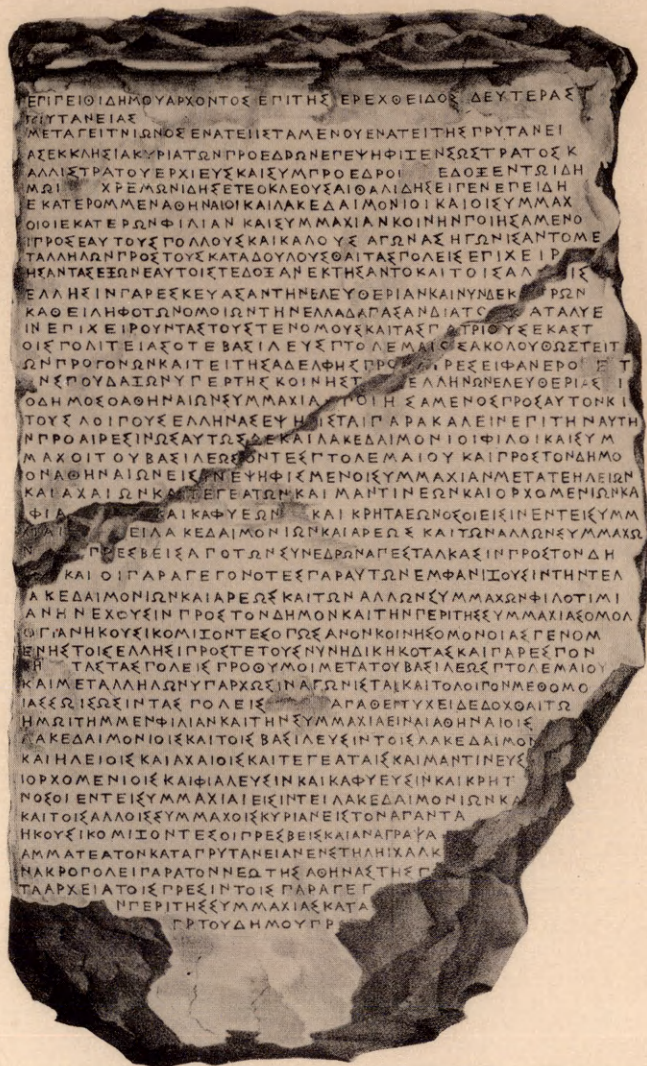 ΕΠΙΠΕΙΘΙΔΗΜΟΥΑΡΧΟΝΤΟΣ ΕΠΙΤΗΣ ΕΡΕΧΘΕΙΔΟΣ ΔΕΥΤΕΡΑΣ
ΠΡΥΤΑΝΕΙΑΣ
ΜΕΤΑΓΕΙΤΝΙΩΝΟΣ ΕΝΑΤΕΙΙΣΤΑΜΕΝΟΥΕΝΑΤΕΙΤΗΣΠΡΥΤΑΝΕΙ
ΑΣΕΚΚΛΗΣΙΑΚΥΡΙΑΤΩΝΠΡΟΕΔΡΩΝΕΠΕΨΗΦΙΞΕΝΣΩΣΤΡΑΤΟΣΚ
ΑΛΛΙΣΤΡΑΤΟΥΕΡΧΙΕΥΣΚΑΙΣΥΜΠΡΟΕΔΡΟΙ ΕΔΟΞΕΝΤΩΙΔΗ
ΜΩΙ ΧΡΕΜΩΝΙΔΗΣΕΤΕΟΚΛΕΟΥΣΑΙΘΑΛΙΔΗΣΕΙΠΕΝΕΠΕΙΔΗ
ΕΚΑΤΕΡΟΜΜΕΝΑΘΗΝΑΙΟΙΚΑΙΛΑΚΕΔΑΙΜΟΝΙΟΙΚΑΙΟΙΣΥΜΜΑΧ
ΟΙΟΙΕΚΑΤΕΡΩΝΦΙΛΙΑΝ ΚΑΙΣΥΜΜΑΧΙΑΝΚΟΙΝΗΝΠΟΙΗΣΑΜΕΝΟ
ΙΠΡΟΣΕΑΥΤΟΥΣΠΟΛΛΟΥΣΚΑΙΚΑΛΟΥΣ ΑΓΩΝΑΣΗΓΩΝΙΣΑΝΤΟΜΕ
ΤΑΛΛΗΛΩΝΠΡΟΣΤΟΥΣΚΑΤΑΔΟΥΛΟΥΣΘΑΙΤΑΣΠΟΛΕΙΣΕΠΙΧΕΙΡ
ΗΣΑΝΤΑΣΕΞΩΝΕΑΥΤΟΙΣΤΕΔΟΞΑΝΕΚΤΗΣΑΝΤΟΚΑΙΤΟΙΣΑΛ ΙΣ
ΕΛΛΗΣΙΝΠΑΡΕΣΚΕΥΑΣΑΝΤΗΝΕΛΕΥΘΕΡΙΑΝΚΑΙΝΥΝΔΕΚ ΡΩΝ
ΚΑΘΕΙΛΗΦΟΤΩΝΟΜΟΙΩΝΤΗΝΕΛΛΑΔΑΠΑΣΑΝΔΙΑΤΟ ΑΤΑΛΥΕ
ΙΝΕΠΙΧΕΙΡΟΥΝΤΑΣΤΟΥΣΤΕΝΟΜΟΥΣΚΑΙΤΑΣΠ ΤΡΙΟΥΣΕΚΑΣΤ
ΟΙΣΠΟΛΙΤΕΙΑΣΟΤΕΒΑΣΙΛΕΥΣΠΤΟΛΕΜΑΙΟΣΑΚΟΛΟΥΘΩΣΤΕΙΤ
ΩΝΠΡΟΓΟΝΩΝΚΑΙΤΕΙΤΗΣΑΔΕΛΦΗΣΠΡΟ ΡΕΣΕΙΦΑΝΕΡΟ ΕΤ
ΝΣΠΟΥΔΑΞΩΝΥΠΕΡΤΗΣΚΟΙΝΗΣΤ ΕΛΛΗΝΩΝΕΛΕΥΘΕΡΙΑΣ Ι
ΟΔΗΜΟΣΟΑΘΗΝΑΙΩΝΣΥΜΜΑΧΙΑ ΠΟΙΗΣΑΜΕΝΟΣΠΡΟΣΑΥΤΟΝΚΙ
ΤΟΥΣΛΟΙΠΟΥΣΕΛΛΗΝΑΣΕΨΗ ΙΣΤΑΙΠΑΡΑΚΑΛΕΙΝΕΠΙΤΗΝΑΥΤΗ
ΝΠΡΟΑΙΡΕΣΙΝΩΣΑΥΤΩΣΔΕΚΑΙΛΑΚΕΔΑΙΜΟΝΙΟΙΦΙΛΟΙΚΑΙΣΥΜ
ΜΑΧΟΙΤΟΥΒΑΣΙΛΕΩΣΟΝΤΕΣΠΤΟΛΕΜΑΙΟΥ ΚΑΙΠΡΟΣΤΟΝΔΗΜΟ
ΟΝΑΘΗΝΑΙΩΝΕΙΣΙΝΕΨΗΦΙΣΜΕΝΟΙΣΥΜΜΑΧΙΑΝΜΕΤΑΤΕΗΛΕΙΩΝ
ΚΑΙΑΧΑΙΩΝΚΑΙΤΕΓΕΑΤΩΝΚΑΙΜΑΝΤΙΝΕΩΝΚΑΙΟΡΧΟΜΕΝΙΩΝΚΑ
ΦΙΑ ΑΙΚΑΦΥΕΩΝ ΚΑΙΚΡΗΤΑΕΩΝΟΣΟΙΕΙΣΙΝΕΝΤΕΙΣΥΜΜ
ΕΙΛΑΚΕΔΑΙΜΟΝΙΩΝΚΑΙΑΡΕΩΣ ΚΑΙΤΩΝΑΛΛΩΝΣΥΜΜΑΧΩ
Ν ΡΕΣΒΕΙΣΑΠΟΤΩΝΣΥΝΕΔΡΩΝΑΠΕΣΤΑΛΚΑΣΙΝΠΡΟΣΤΟΝΔΗ
ΚΑΙΟΙΠΑΡΑΓΕΓΟΝΟΤΕΣΠΑΡΑΥΤΩΝΕΜΦΑΝΙΞΟΥΣΙΝΤΗΝΤΕΛ
ΑΚΕΔΑΙΜΟΝΙΩΝΚΑΙΑΡΕΩΣΚΑΙΤΩΝΑΛΛΩΝΣΥΜΜΑΧΩΝΦΙΛΟΤΙΜΙ
ΑΝΗΝΕΧΟΥΣΙΝΠΡΟΣΤΟΝΔΗΜΟΝΚΑΙΤΗΝΠΕΡΙΤΗΣΣΥΜΜΑΧΙΑΣΟΜΟΛ
ΟΓΙΑΝΗΚΟΥΣΙΚΟΜΙΞΟΝΤΕΣΟΠΩΣΑΝΟΝΚΟΙΝΗΣΟΜΟΝΟΙΑΣΓΕΝΟΜ
ΕΝΗΣΤΟΙΣΕΛΛΗΣΙΠΡΟΣΤΕΤΟΥΣΝΥΝΗΔΙΚΗΚΟΤΑΣΚΑΙΠΑΡΕΣΠΟΝ
ΤΑΣΤΑΣΠΟΛΕΙΣΠΡΟΘΥΜΟΙΜΕΤΑΤΟΥΒΑΣΙΛΕΩΣΠΤΟΛΕΜΑΙΟΥ
ΚΑΙΜΕΤΑΛΛΗΛΩΝΥΠΑΡΧΩΣΙΝΑΓΩΝΙΣΤΑΙΚΑΙΤΟΛΟΙΠΟΝΜΕΘΟΜΟ
ΙΑΣΣΩΙΣΩΣΙΝΤΑΣ ΠΟΛΕΙΣ ΑΓΑΘΕΙΤΥΧΕΙΔΕΔΟΧΘΑΙΤΩ
ΗΜΩΙΤΗΜΜΕΝΦΙΛΙΑΝΚΑΙΤΗΝΣΥΜΜΑΧΙΑΕΙΝΑΙΑΘΗΝΑΙΟΙΣ
ΛΑΚΕΔΑΙΜΟΝΙΟΙΣΚΑΙΤΟΙΣΒΑΣΙΛΕΥΣΙΝΤΟΙΣΛΑΚΕΔΑΙΜΟΝ
ΚΑΙΗΛΕΙΟΙΣΚΑΙΑΧΑΙΟΙΣΚΑΙΤΕΓΕΑΤΑΙΣΚΑΙΜΑΝΤΙΝΕΥΣ
ΙΟΡΧΟΜΕΝΙΟΙΣΚΑΙΦΙΑΛΕΥΣΙΝΚΑΙΚΑΦΥΕΥΣΙΝΚΑΙΚΡΗΤ
ΝΟΣΟΙΕΝΤΕΙΣΥΜΜΑΧΙΑΙΕΙΣΙΝΤΕΙΛΑΚΕΔΑΙΜΟΝΙΩΝΚΑ
ΚΑΙΤΟΙΣΑΛΛΟΙΣΣΥΜΜΑΧΟΙΣΚΥΡΙΑΝΕΙΣΤΟΝΑΠΑΝΤΑ
ΗΚΟΥΣΙΚΟΜΙΞΟΝΤΕΣΟΙΠΡΕΣΒΕΙΣΚΑΙΑΝΑΓΡΑΨΑ
ΑΜΜΑΤΕΑΤΟΝΚΑΤΑΠΡΥΤΑΝΕΙΑΝΕΝΣΤΗΛΗΙΧΑΛΚ
ΝΑΚΡΟΠΟΛΕΙΠΑΡΑΤΟΝΝΕΩΤΗΣΑΘΗΝΑΣΤΗΣΠ
ΤΑΑΡΧΕΙΑΤΟΙΣΠΡΕΣΙΝΤΟΙΣΠΑΡΑΓΕΓ
ΝΠΕΡΙΤΗΣΣΥΜΜΑΧΙΑΣΚΑΤΑ
ΠΡΤΟΥΔΗΜΟΥΠΡ